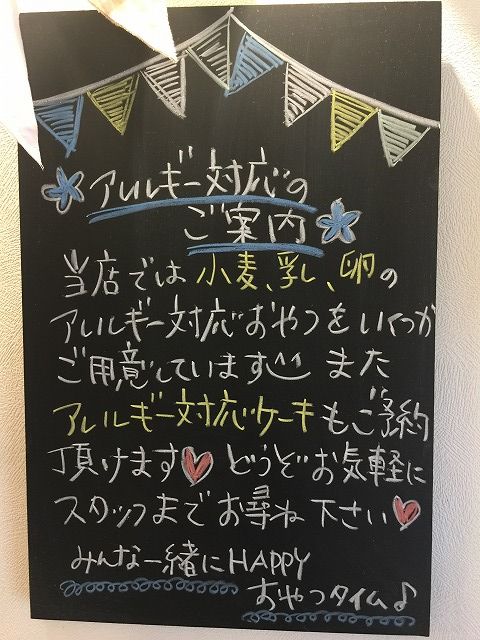 アレルギー対応の
ご案内
当店では小麦、乳、卵の
アレルギー対応おやつをいくつか
ご用意しています^^ また
アレルギー対応ケーキもご予約
頂けます♥ どうぞお気軽に
スタッフまでお尋ね下さい♥
みんな一緒にHAPPY
おやつタイム♪